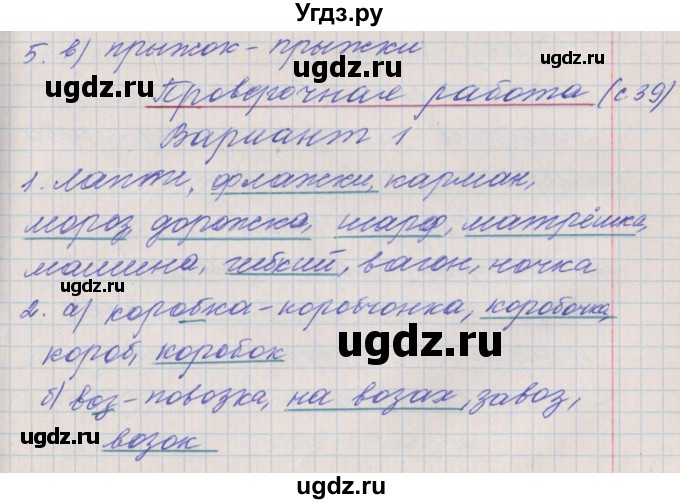 Угдз.ру
5. в) прыжок - прыжки
Проверочная работа (с 39)
Вариант 1
1. Лапти, флажки, карман,
мороз, дорожка, шарф, матрёшка,
машина, гибкий, вагон, ночка
2. а) коробка - коробчонка, коробочка,
короб, коробок
б) воз - повозка, на возах, завоз,
возок
ugdz.ru
ugdz.ru
ugdz.ru
ugdz.ru
ugdz.ru
ugdz.ru
ugdz.ru
ugdz.ru
ugdz.ru
ugdz.ru
ugdz.ru